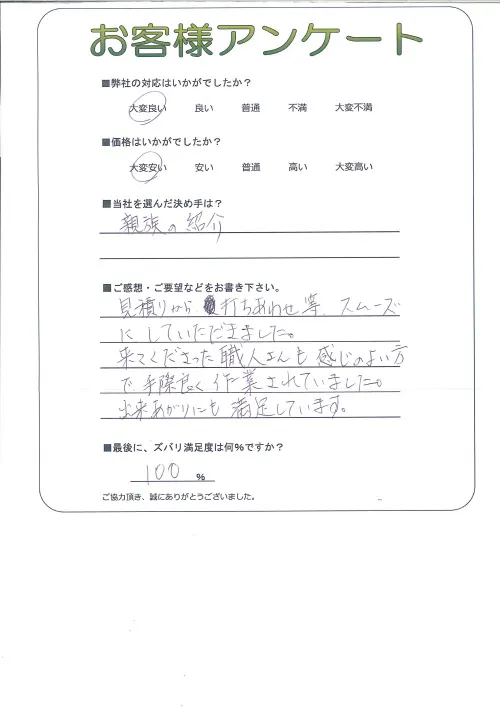 お客様アンケート
■弊社の対応はいかがでしたか？
大変良い 良い 普通 不満 大変不満
■価格はいかがでしたか？
大変安い 安い 普通 高い 大変高い
■当社を選んだ決め手は？
親族の紹介
■ご感想・ご要望などをお書き下さい。
見積りから 打ちあわせ等、スムーズ
にしていただきました。
来てくださった職人さんも感じのよい方
で手際良く作業されていました。
出来あがりにも満足しています。
■最後に、ズバリ満足度は何％ですか？
100 ％
ご協力頂き、誠にありがとうございました。